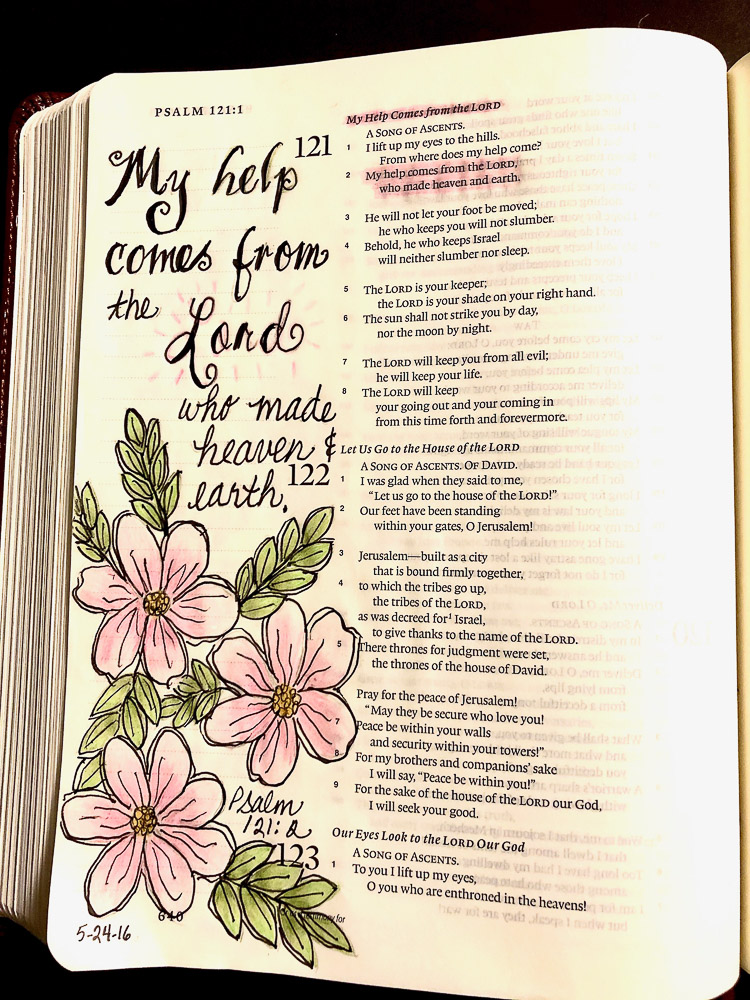 PSALM 121:1
My help
comes from
the Lord
who made
heaven &
earth.
Psalm
121:2
640
5-24-16
My Help Comes from the LORD
121
A SONG OF ASCENTS.
1 I lift up my eyes to the hills.
From where does my help come?
2 My help comes from the LORD,
who made heaven and earth.
3 He will not let your foot be moved;
he who keeps you will not slumber.
4 Behold, he who keeps Israel
will neither slumber nor sleep.
5 The LORD is your keeper;
the LORD is your shade on your right hand.
6 The sun shall not strike you by day,
nor the moon by night.
7 The LORD will keep you from all evil;
he will keep your life.
8 The LORD will keep
your going out and your coming in
from this time forth and forevermore.
Let Us Go to the House of the LORD
122
A SONG OF ASCENTS. OF DAVID.
1 I was glad when they said to me,
“Let us go to the house of the LORD!”
2 Our feet have been standing
within your gates, O Jerusalem!
3 Jerusalem—built as a city
that is bound firmly together,
4 to which the tribes go up,
the tribes of the LORD,
as was decreed for¹ Israel,
to give thanks to the name of the LORD.
5 There thrones for judgment were set,
the thrones of the house of David.
Pray for the peace of Jerusalem!
“May they be secure who love you!
7 Peace be within your walls
and security within your towers!”
8 For my brothers and companions’ sake
I will say, “Peace be within you!”
9 For the sake of the house of the LORD our God,
I will seek your good.
Our Eyes Look to the LORD Our God
123
A SONG OF ASCENTS.
1 To you I lift up my eyes,
O you who are enthroned in the heavens!
for